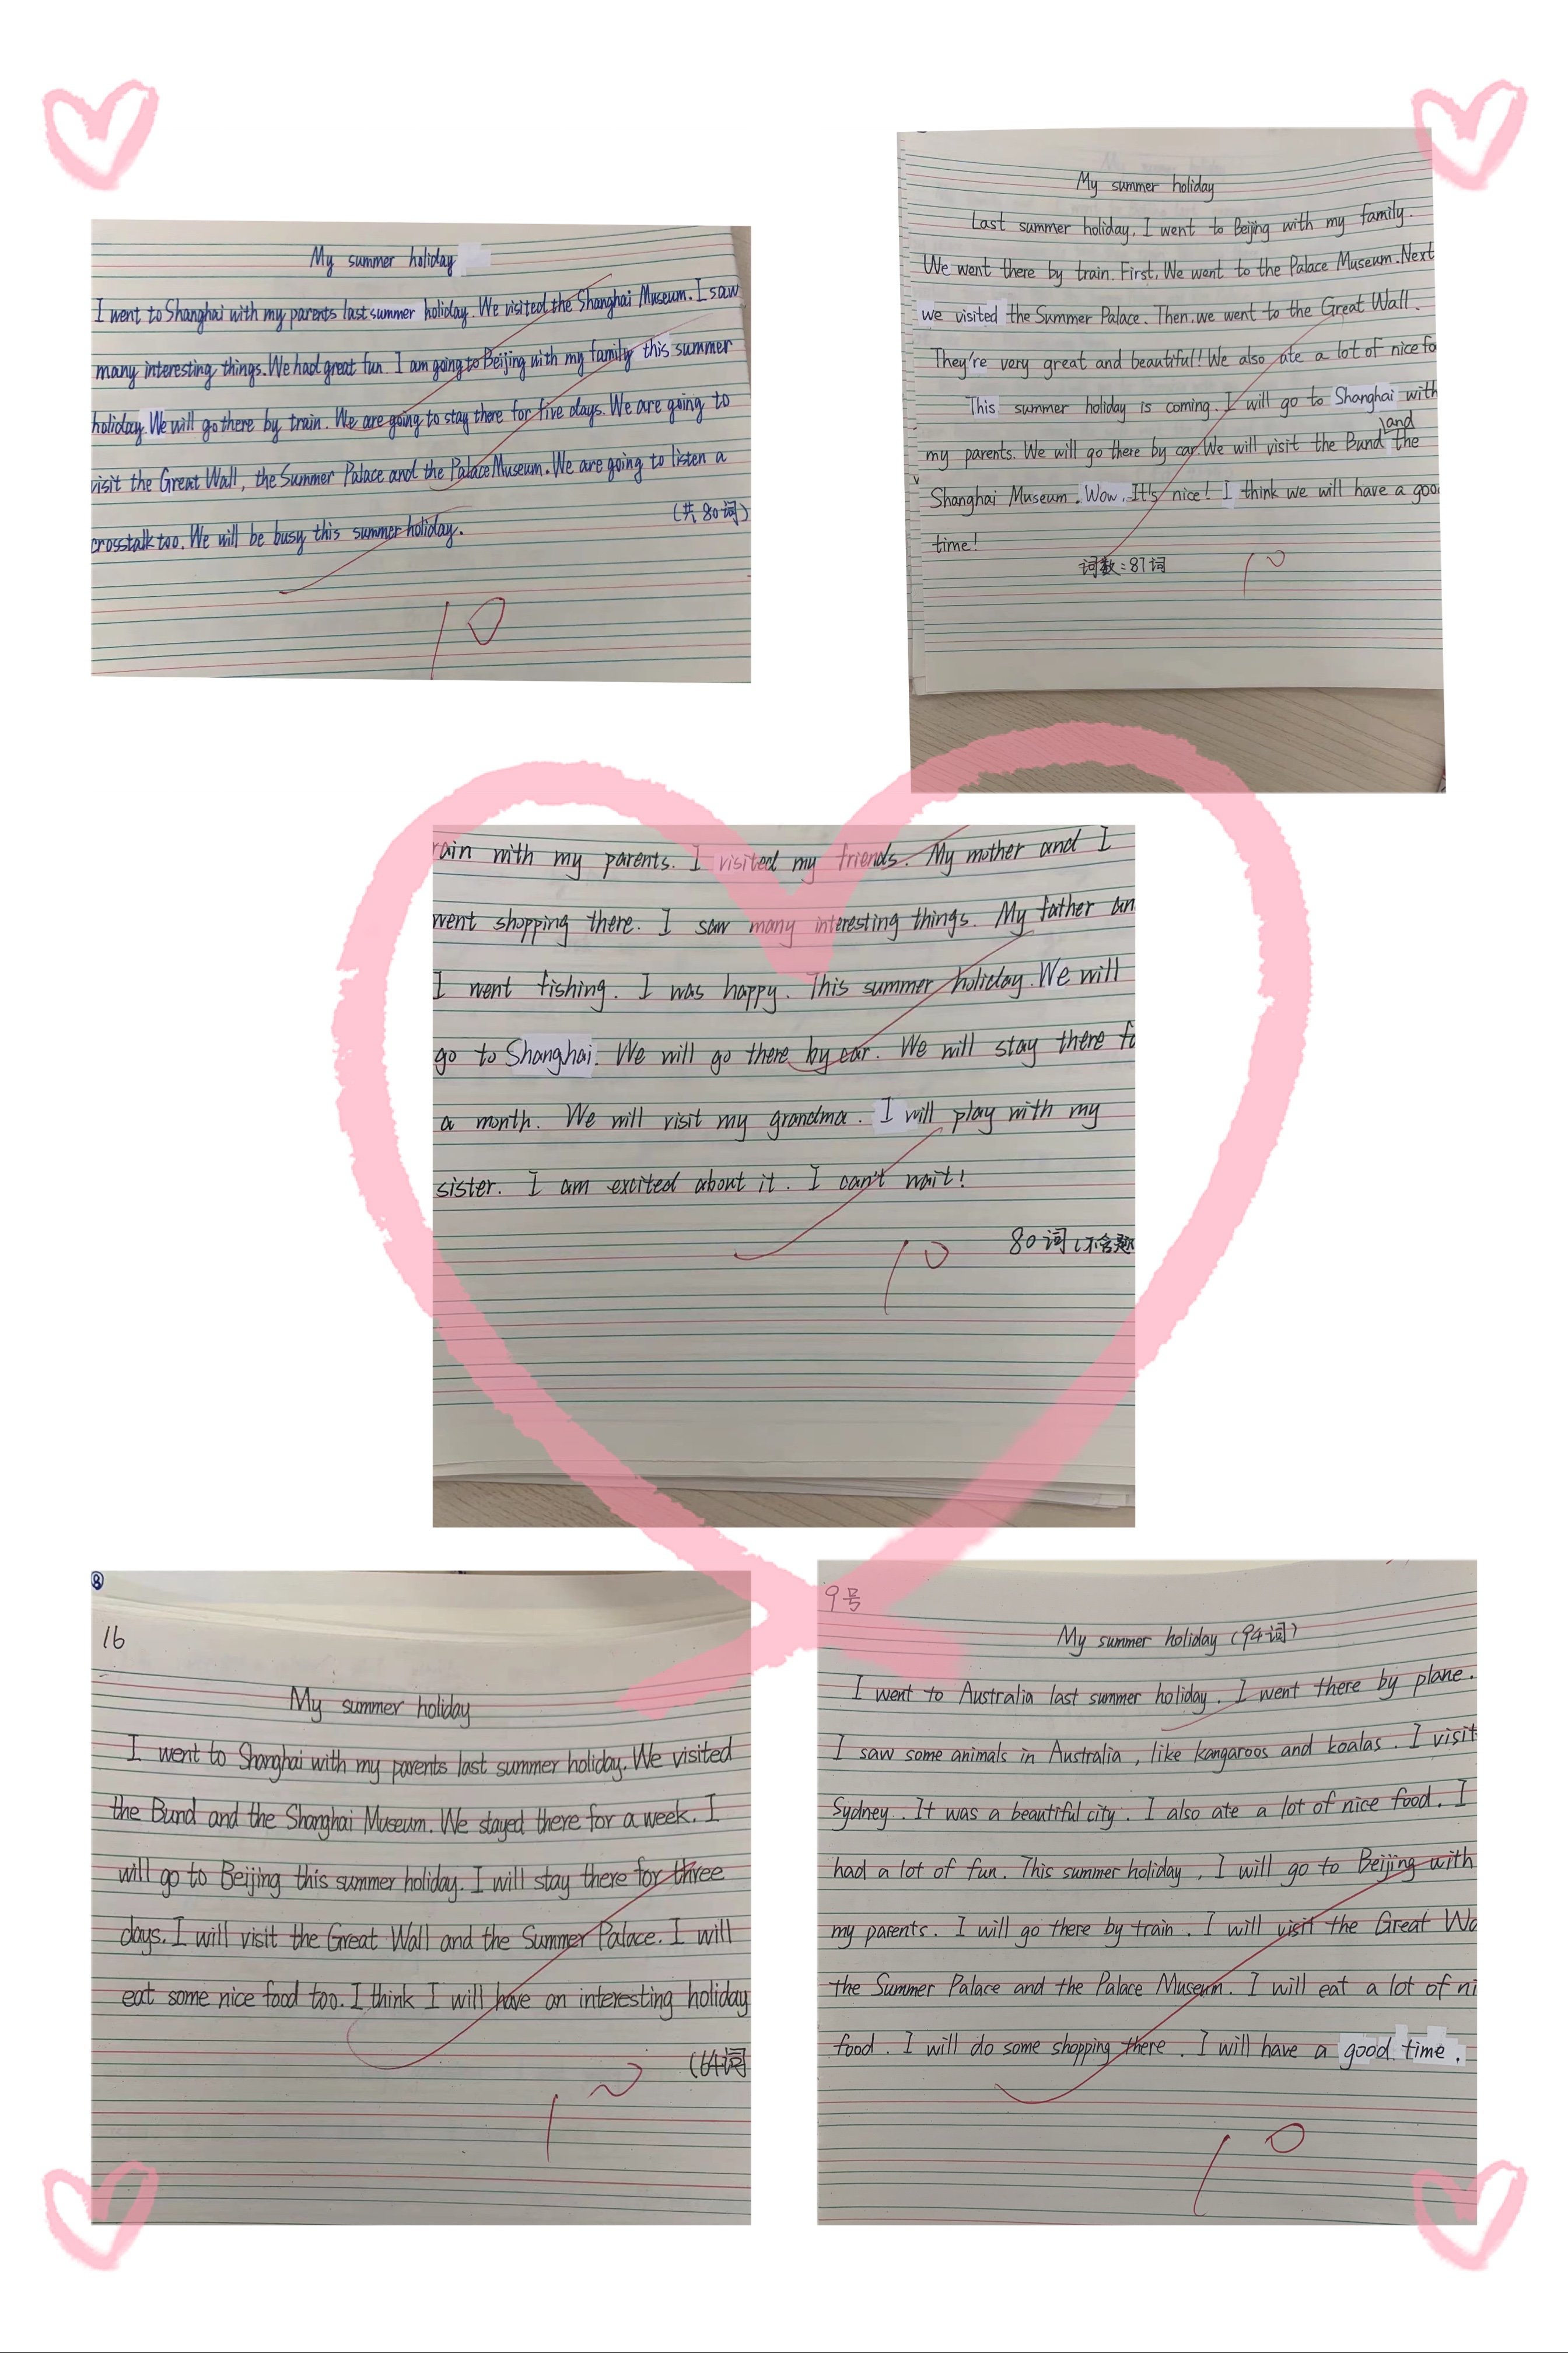 My summer holiday
I went to Shanghai with my parents last summer holiday. We visited the Shanghai Museum. I saw
many interesting things. We had great fun. I am going to Beijing with my family this summer
holiday. We will go there by train. We are going to stay there for five days. We are going to
visit the Great Wall, the Summer Palace and the Palace Museum. We are going to listen a
crosstalk too. We will be busy this summer holiday.
(共80词)
10
My summer holiday
Last summer holiday, I went to Beijing with my family.
We went there by train. First, We went to the Palace Museum. Next
we visited the Summer Palace. Then, we went to the Great Wall.
They're very great and beautiful! We also ate a lot of nice fo
This summer holiday is coming. I will go to Shanghai with
my parents. We will go there by car. We will visit the Bund and the
Shanghai Museum. Wow, It's nice! I think we will have a goo
time!
词数:87词
10
rain with my parents. I visited my friends. My mother and I
went shopping there. I saw many interesting things. My father an
I went fishing. I was happy. This summer holiday. We will
go to Shanghai. We will go there by car. We will stay there fo
a month. We will visit my grandma. I will play with my
sister. I am excited about it. I can't wait!
80词(不含题
10
⑧
16
My summer holiday
I went to Shanghai with my parents last summer holiday. We visited
the Bund and the Shanghai Museum. We stayed there for a week. I
will go to Beijing this summer holiday. I will stay there for three
days. I will visit the Great Wall and the Summer Palace. I will
eat some nice food too. I think I will have an interesting holiday
(64词
10
9号
My summer holiday (94词)
I went to Australia last summer holiday. I went there by plane.
I saw some animals in Australia, like kangaroos and koalas. I visit
Sydney. It was a beautiful city. I also ate a lot of nice food. I
had a lot of fun. This summer holiday, I will go to Beijing with
my parents. I will go there by train. I will visit the Great Wa
the Summer Palace and the Palace Museum. I will eat a lot of ni
food. I will do some shopping there. I will have a good time.
10